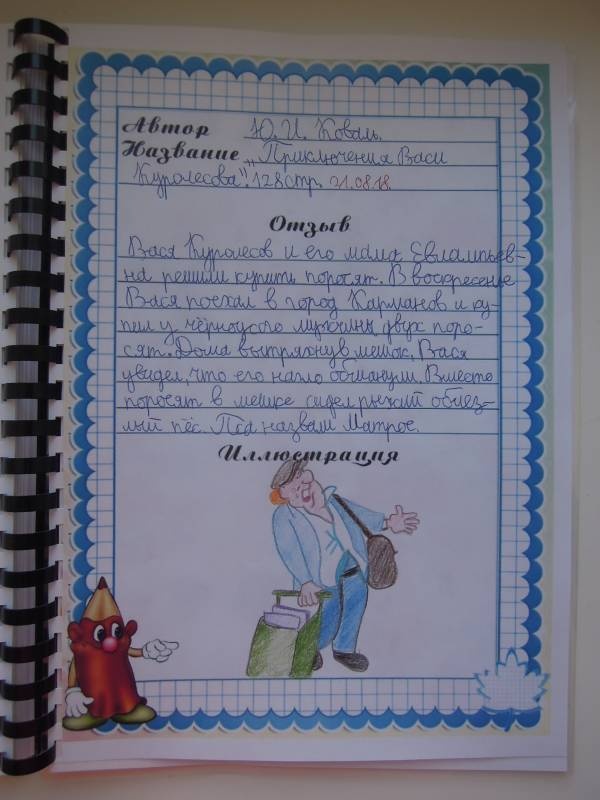 Автор Ю. И. Коваль.
Название „Приключения Васи
Куролесова". 128 стр. 21.08.18
Отзыв
Вася Куролесов и его мама Евлампьев-
на решили купить поросят. В воскресенье
Вася поехал в город Карманов и ку-
пил у чёрноусого мужчины двух поро-
сят. Дома вытряхнув мешок, Вася
увидел, что его нагло обманули. Вместо
поросят в мешке сидел рыжий облез-
лый пёс. Пса назвали Матрос.
Иллюстрация